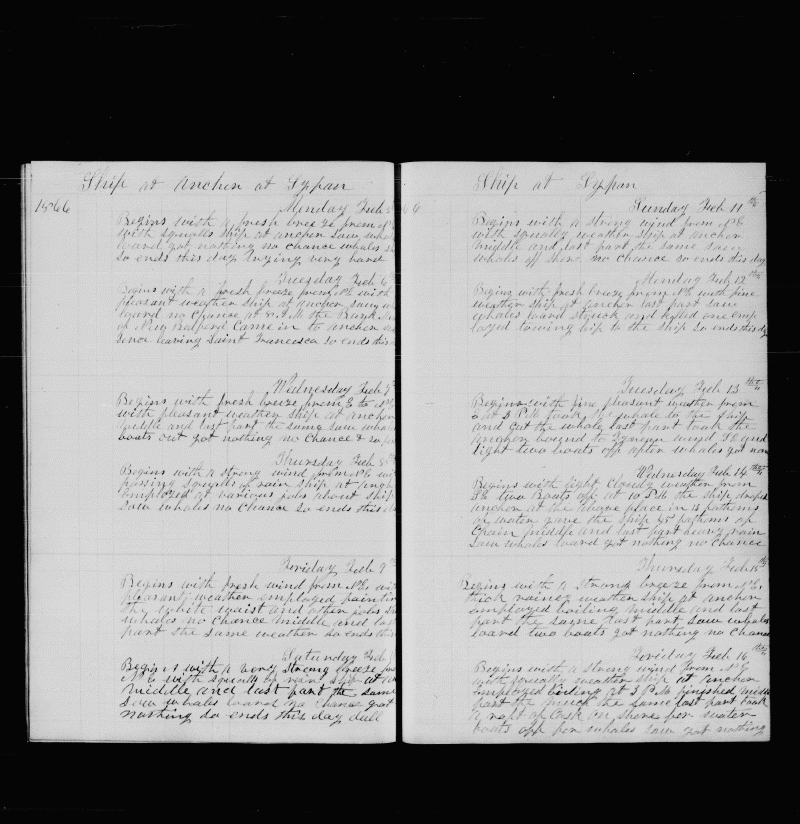 Ship at Anchor at Sypan
1866
Munday Feb 5
Begins with a fresh breeze from N E
with squalls ship at anchor Saw whal
loard got nothing no chance whales
so ends this day trying very hard
Tuesday Feb 6th
Begins with a fresh breeze from N E with
pleasant weather ship at anchor saw w
loard no chance at 8 A M the Bark
of New Bedford Came in to anchor
Sence leaving Saint Francisco so ends this
Wednesday Feb 7th
Begins with fresh breeze from E to N E
with pleasant weather ship at anchor
middle and last part the same saw whal
boats out got nothing no chance & so
Thursday Feb 8th
Begins with a strong wind from N E wi
passing squalls of rain ship at anch
employed at various jobs about ship
Saw whales no chance so ends this d
Foriday Feb 9th
Begins with fresh wind from N E wi
pleasant weather employed paintin
the white waist and other jobs S
whales no chance middle and las
part the same weather so ends this
Saturday Feb
Begins with a very strong breeze fro
N E with squally of rain ship at an
middle and last part the same
Saw whales loard no chance got
nothing so ends this day dull
Ship at Sypan
66
Sunday Feb 11th
Begins with a strong wind from N E
with squally weather ship at anchor
middle and last part the same saw
whals off shore no chance so ends this day
Monday Feb 12th
Begins with fresh breeze from N E with fine
weather ship at anchor last part saw
whales loard struck and killed one emp
loyed towing hip to the ship so ends this dy
Tuesday Feb 13th
Begins with fine pleasant weather from
E at 3 P M took the whale to the ship
and Cut the whale last part took the
anchor bound to wind N E and
light two boats off after whales got non
Wednesday Feb 14th
Begins with light Cloudy weather from
N E two Boats off at 10 P M the ship droped
anchor at the above place in 15 fathoms
of water gave the ship 45 fathoms of
Chain middle and last part heavy rain
Saw whales loard got nothing no chance
Thursday Feb 15th
Begins with a strong breeze from N E
thick rainey weather ship at anchor
employed boiling middle and last
part the same last part saw whales
loard two boats got nothing no chance
Foriday Feb 16th
Begins with a strong wind from N E
with squally weather ship at anchor
employed boiling at 3 P M finished middle
part the much the same last part took
a raft of Cask on shore for water
boats off for whales saw got nothing